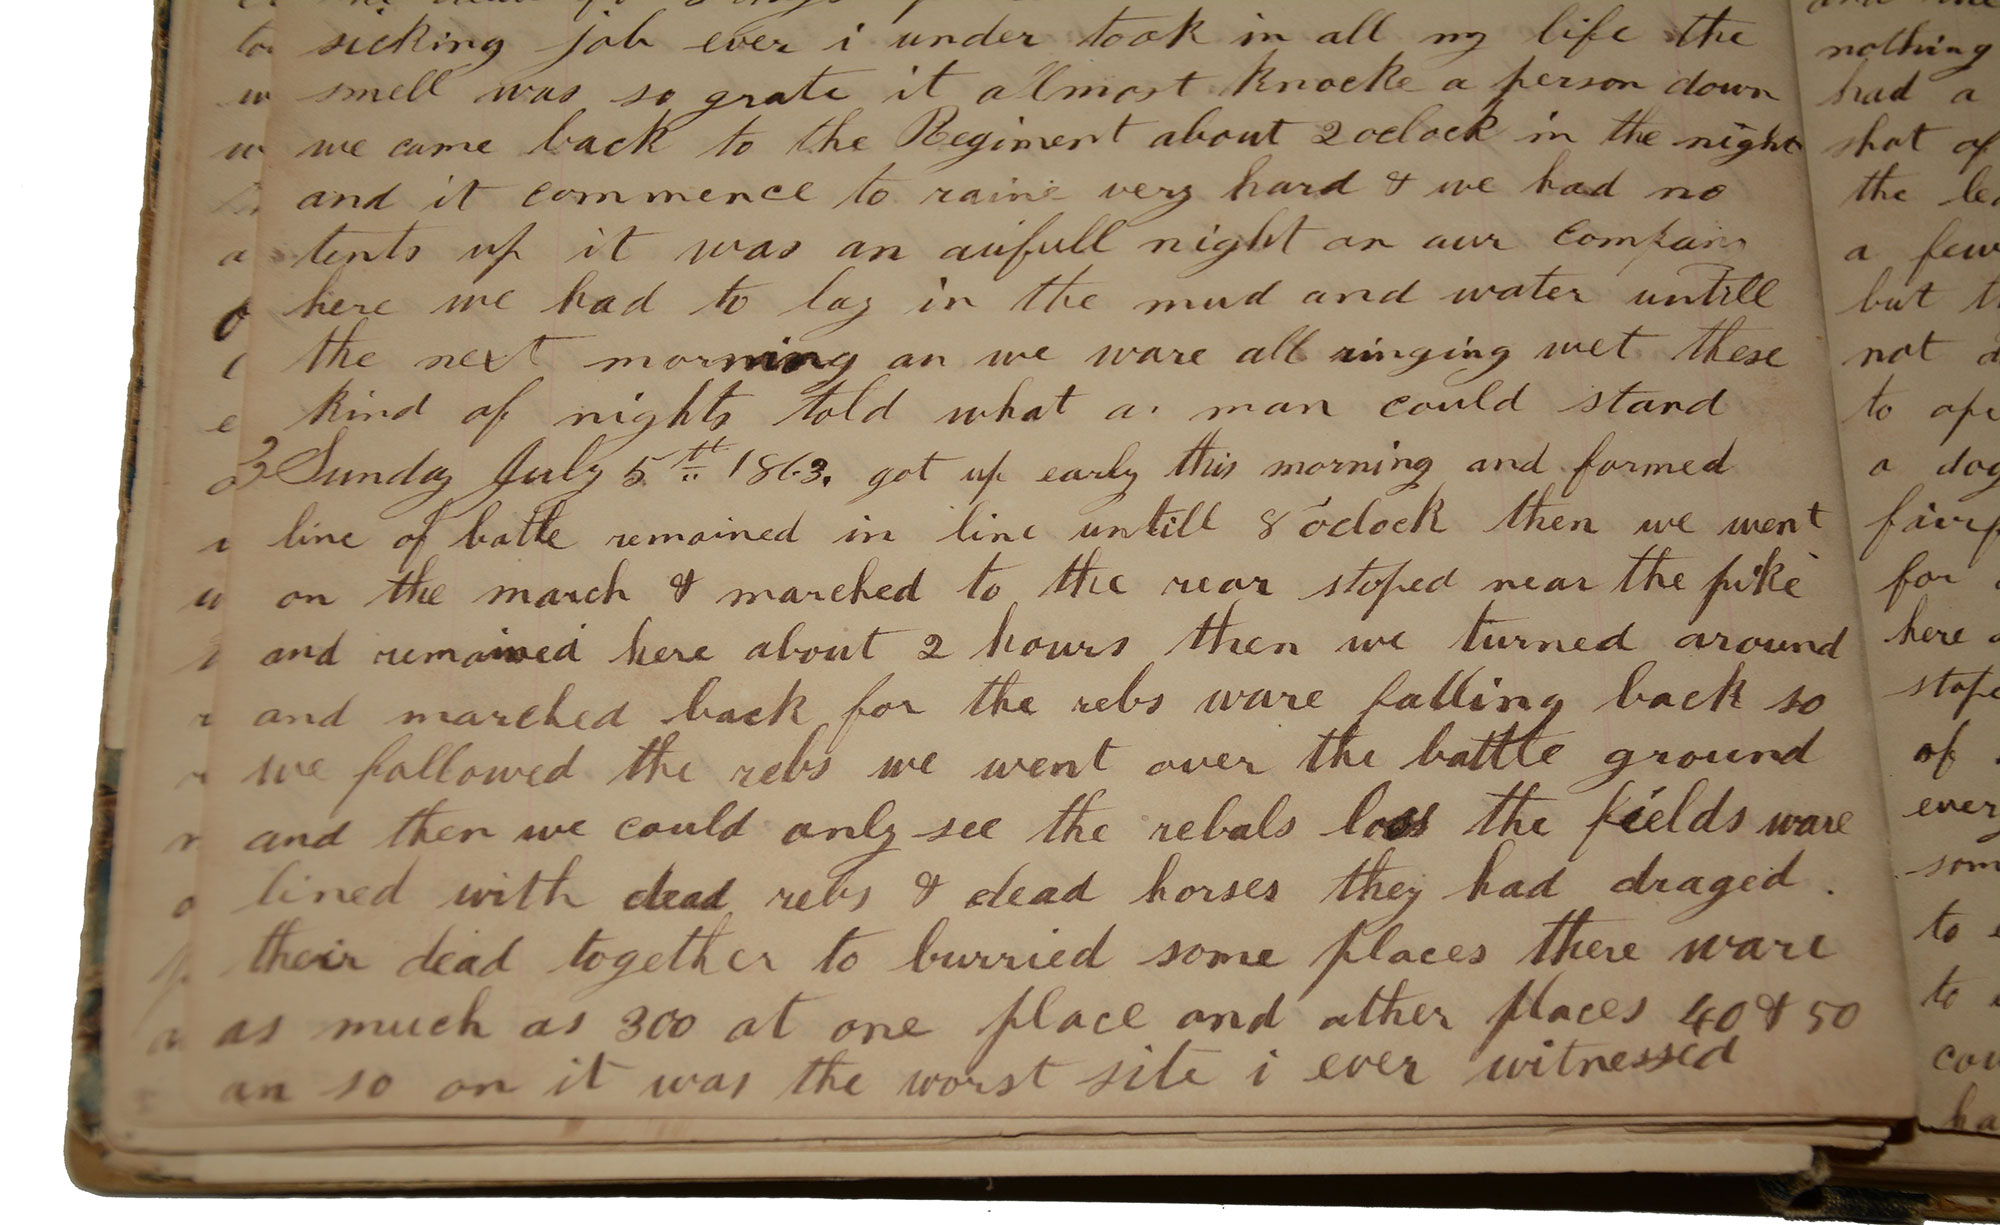 sicking job ever i under took in all my life the
smell was so grate it allmost knocke a person down
we came back to the Regiment about 2 oclock in the night
and it commence to raine very hard & we had no
tents up it was an aufull night on our company
here we had to lay in the mud and water untill
the next morning an we ware all ringing wet these
kind of nights told what a man could stand
Sunday July 5th 1863. got up early this morning and formed
line of battle remained in line untill 8 oclock then we went
on the march & marched to the rear stoped near the pike
and remained here about 2 hours then we turned around
and marched back for the rebs ware falling back so
we followed the rebs we went over the battle ground
and then we could only see the rebals loss the fields ware
lined with dead rebs & dead horses they had draged
their dead together to burried some places there ware
as much as 300 at one place and other places 40 & 50
an so on it was the worst site i ever witnessed
nothing
had a
shot of
the
a few
but
not
to
a dog
for
here
of
to
to